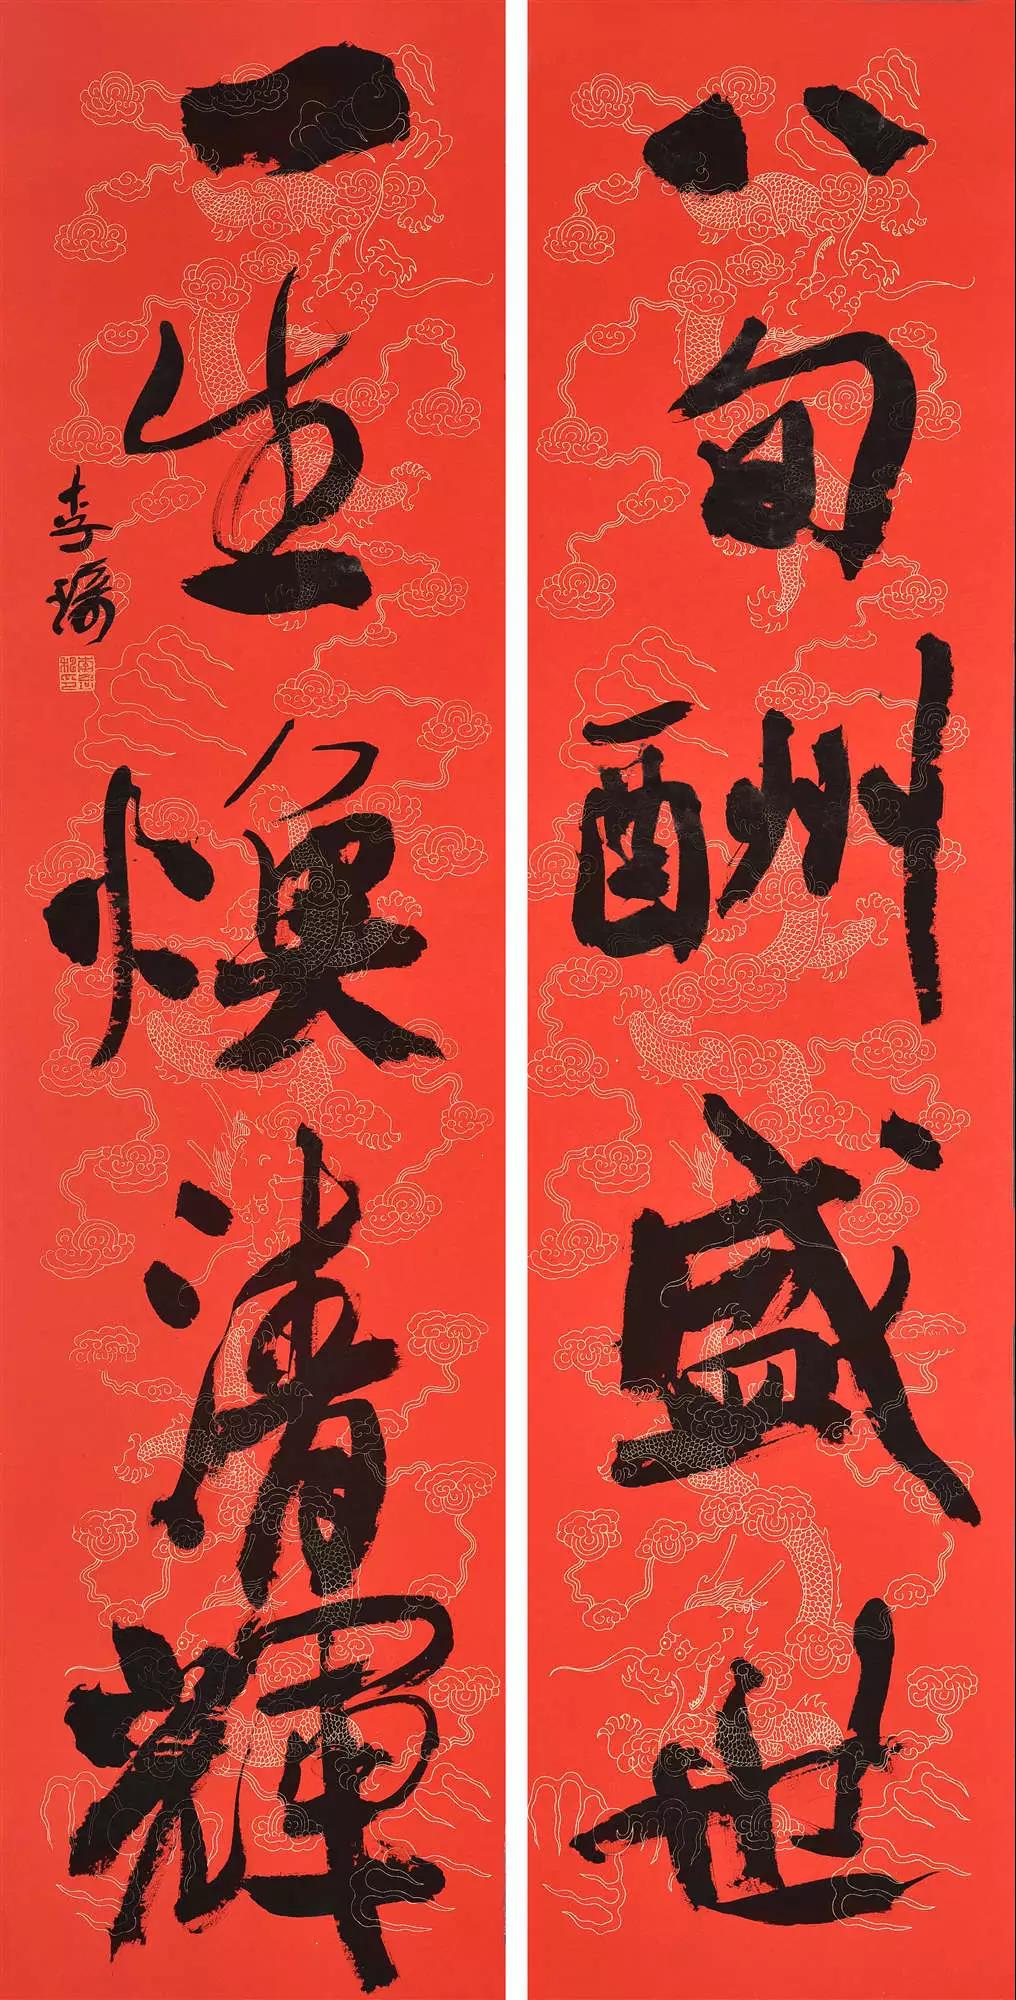 八旬酬盛世
一生焕清辉
李琦